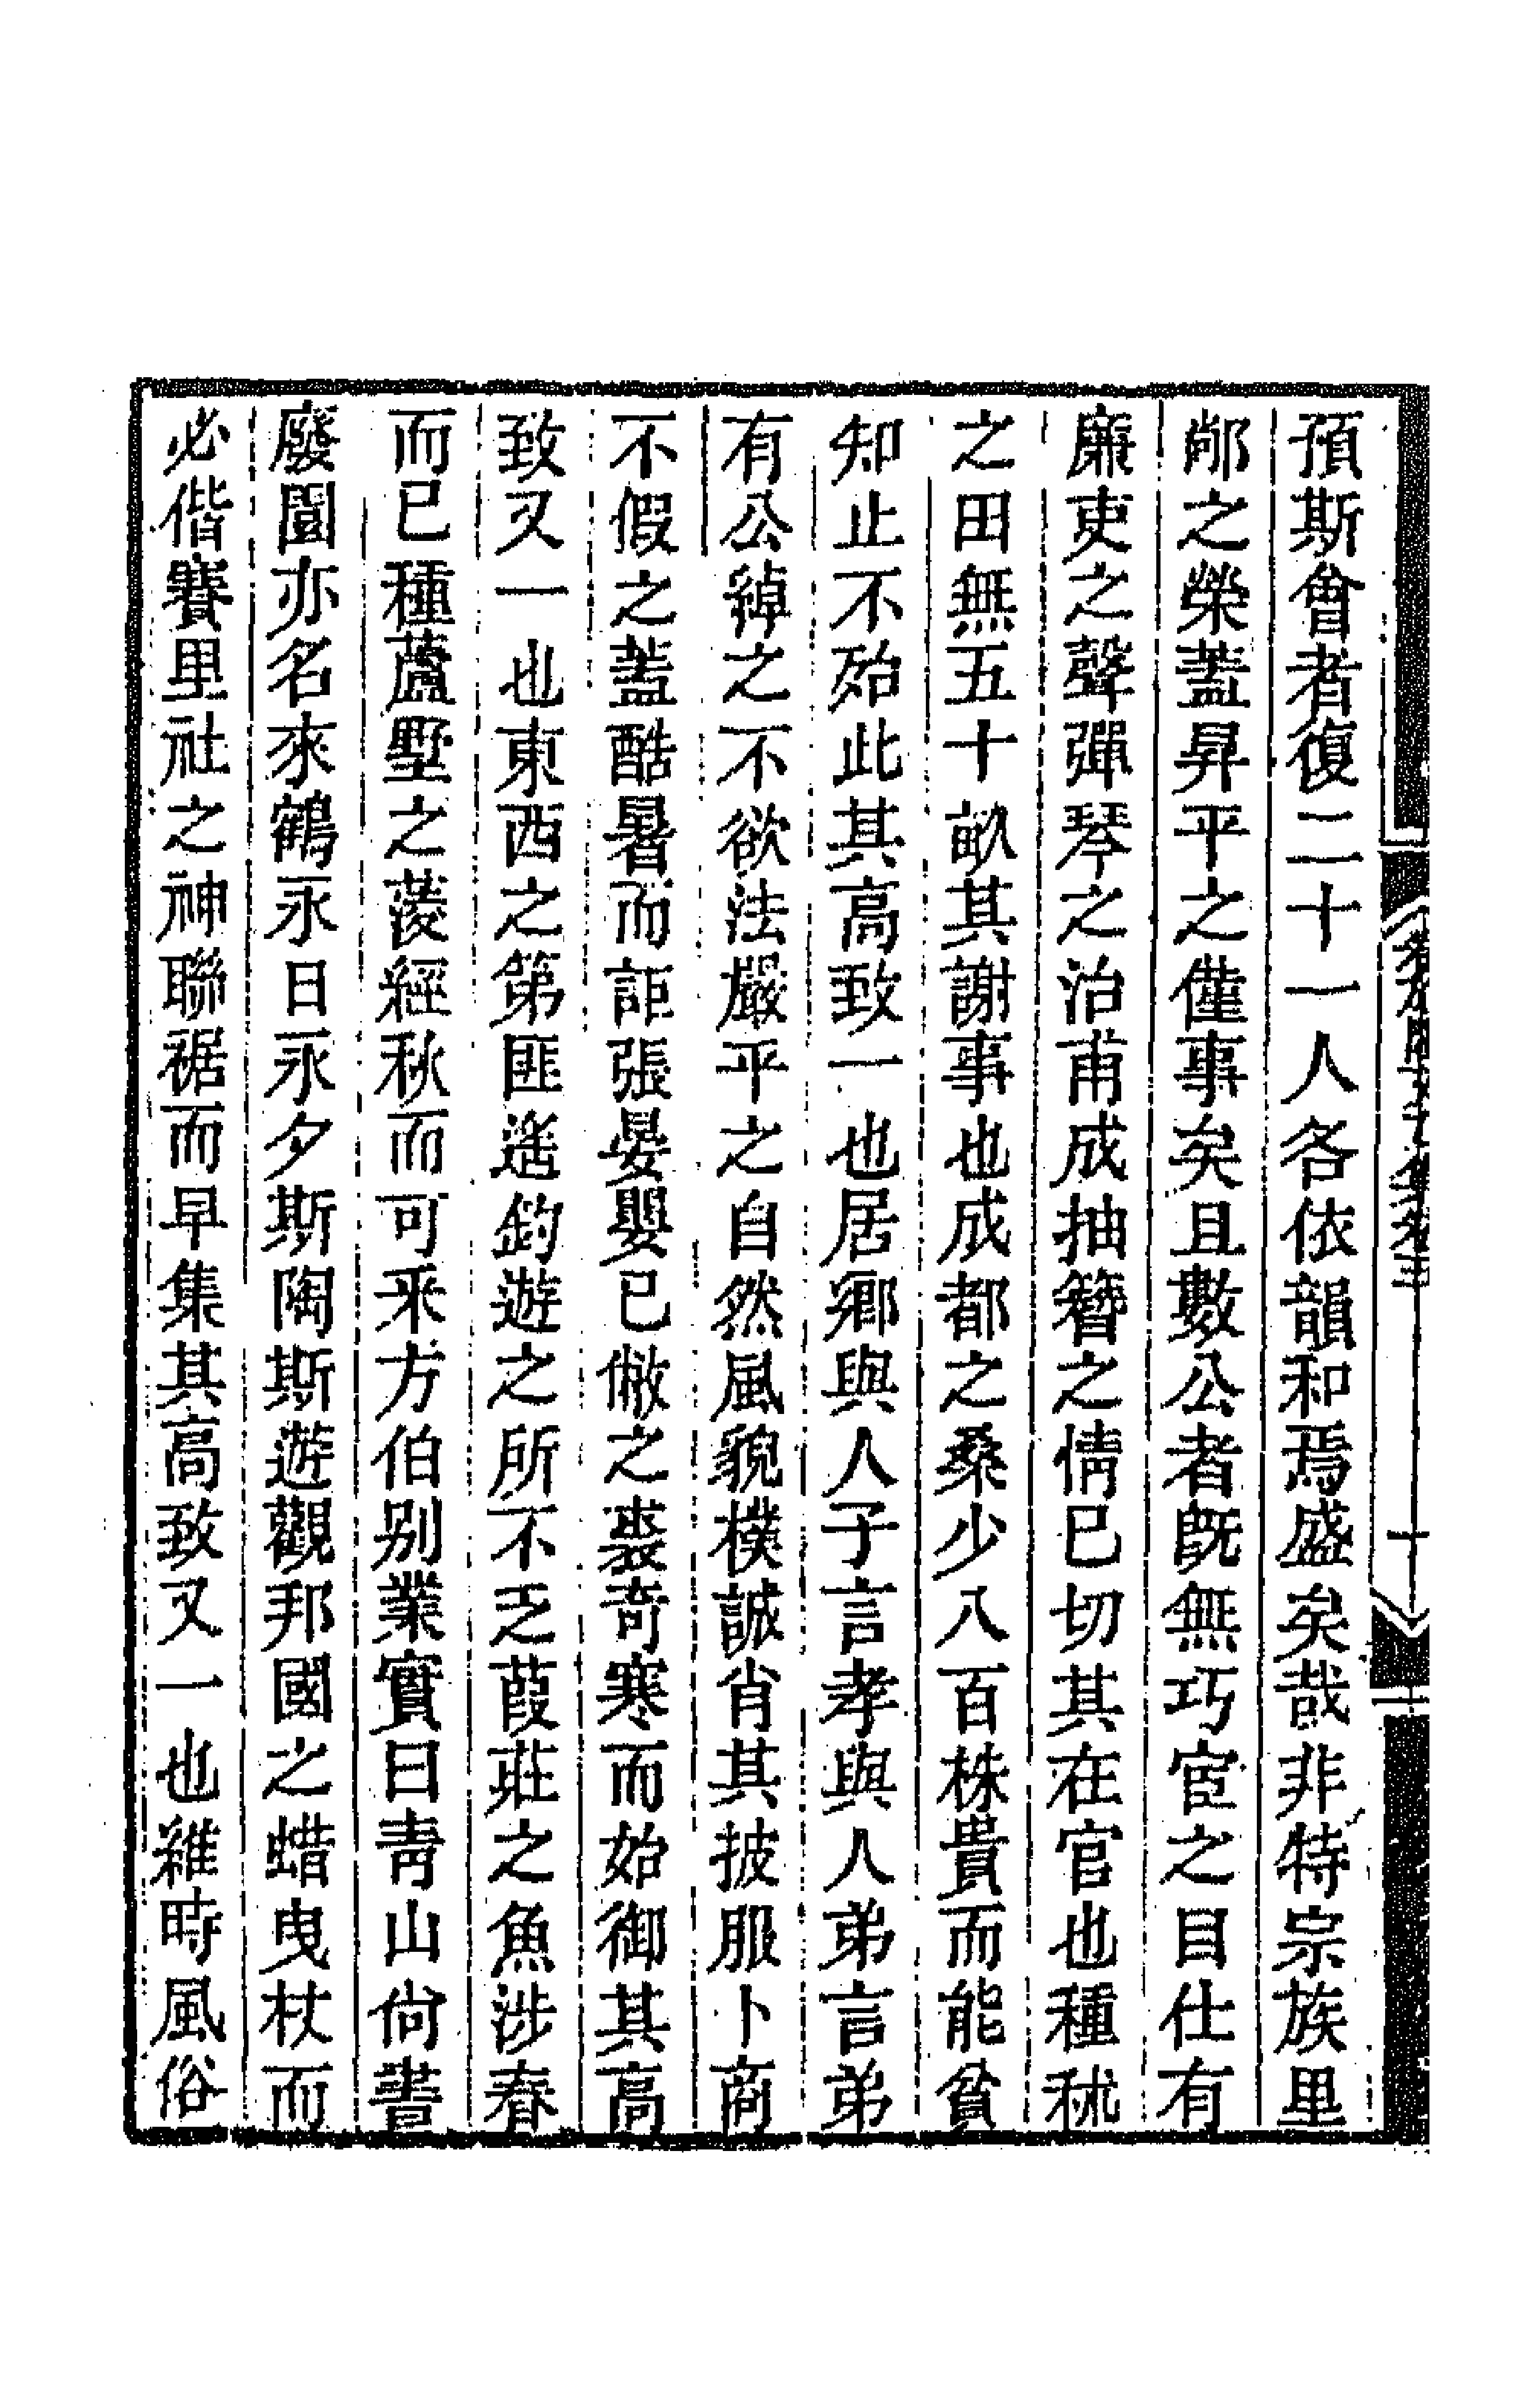 預斯會者復二十一人各依韻和焉盛矣哉非特宗族里
鄰之榮蓋昇平之僅事矣且數公者旣無巧宦之目仕有
廉吏之聲彈琴之治甫成抽簪之情已切其在官也種秫
之田無五十畝其謝事也成都之桑少八百株貴而能貧
知止不殆此其高致一也居鄉與人子言孝與人弟言弟
有公綽之不欲法嚴平之自然風貌樸誠肖其披服卜商
不假之蓋酷暑而詎張晏嬰已敝之裘奇寒而始御其高
致又一也東西之第匪遙釣遊之所不乏葭莊之魚涉春
而已種蘆墅之菱經秋而可采方伯別業實曰靑山尙書
廢園亦名來鶴永日永夕斯陶斯遊觀邦國之蜡曳杖而
必偕賽里社之神聯裾而早集其高致又一也雖時風俗
十